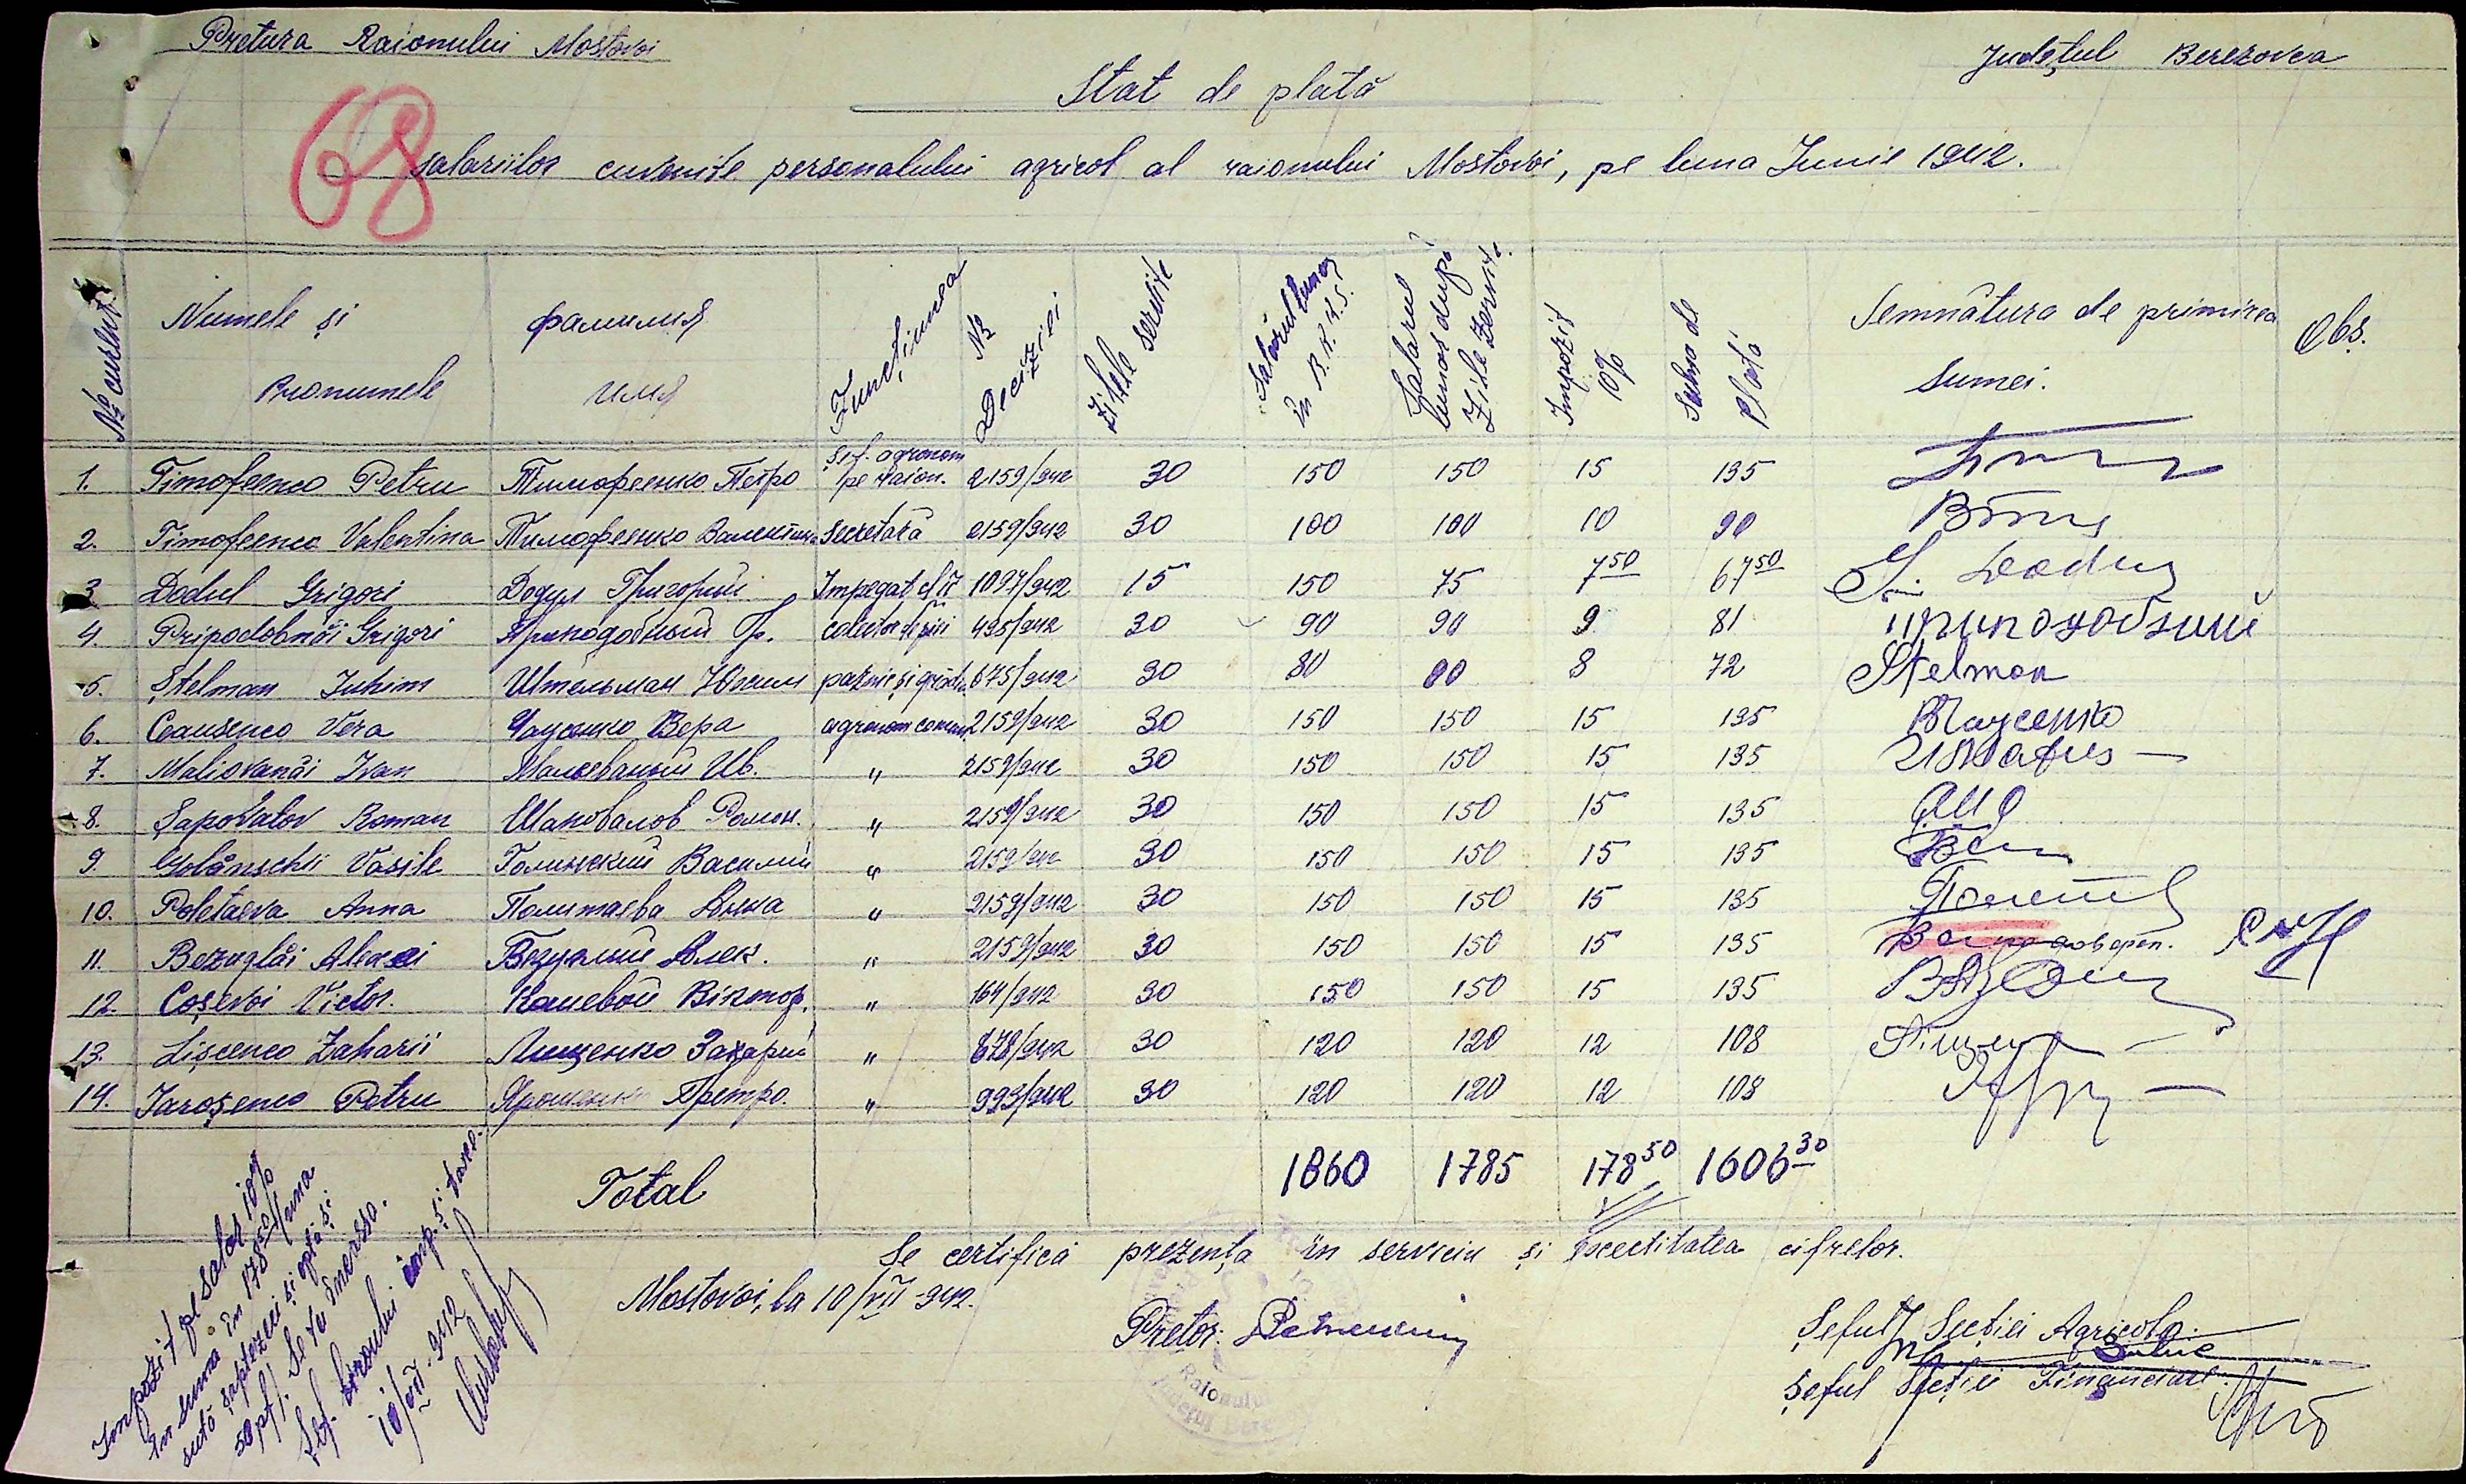 Pretura Raionului Mostovoi
Județul Berezovca
Stat de plată
68
salariilor cuvenite personalului agricol al raionului Mostovoi, pe luna Iunie 1942.
№ curent Numele și Pronumele Фамилия Имя Funcțiunea № Deciziei Zilele servite Salariul lunar în R.K.K.S. Salarul lunar după zile servite Impozit 10% Suma de plată Semnătura de primirea sumei. Obs.
1. Timofeenco Petru Тимофеенко Петро Șef. agronom pe raion. 2159/942 30 150 150 15 135
2. Timofeenco Valentina Тимофеенко Валентина secretară 2159/942 30 100 100 10 90
3 Dodul Grigori Додул Григорий Impegat cl. 1097/942 15 150 75 7 50 67 50
4. Pripodobnâi Grigori Приподобный Гр. colector de piei 495/942 30 90 90 9 81 приподобный
5. Ștelman Iuhim Штельман Юхим paznic și grăd. 675/942 30 80 80 8 72 Stelman
6. Ceausenco Vera Чаусенко Вера agronom comun. 2159/942 30 150 150 15 135 ВЧаусенко
7. Maliovanâi Ivan Малеваный Ив. " 2159/942 30 150 150 15 135
8. Șapovalov Roman Шаповалов Роман. " 2159/942 30 150 150 15 135
9. Golânschii Vasile Голинский Василий " 2159/942 30 150 150 15 135
10. Poletaeva Anna Политаева Анна " 2159/942 30 150 150 15 135
11. Bezuglâi Alexei Безуглый Алек. " 2159/942 30 150 150 15 135 По доверен.
12. Coșevoi Victor. Кошевой Віктор. " 164/942 30 150 150 15 135
13. Lișcenco Zaharii Лищенко Захарий " 678/942 30 120 120 12 108
14. Iaroșenco Petru Ярошенко Претро. " 993/942 30 120 120 12 108
Total 1860 1785 178 50 1606 30
Se certifică prezența în serviciu și exectitatea cifrelor.
Mostovoi, la 10/VII-942.
Pretor:
Șeful Secției Agricole.
Șeful Secției Financiare.
Impozit pe salar 10%
în suma în 178 50 /una
sută șaptezeci și optă și
50 pf/. Se va învărsa.
Șef. biroului imp. și taxe.
10/VII-942
Raionului